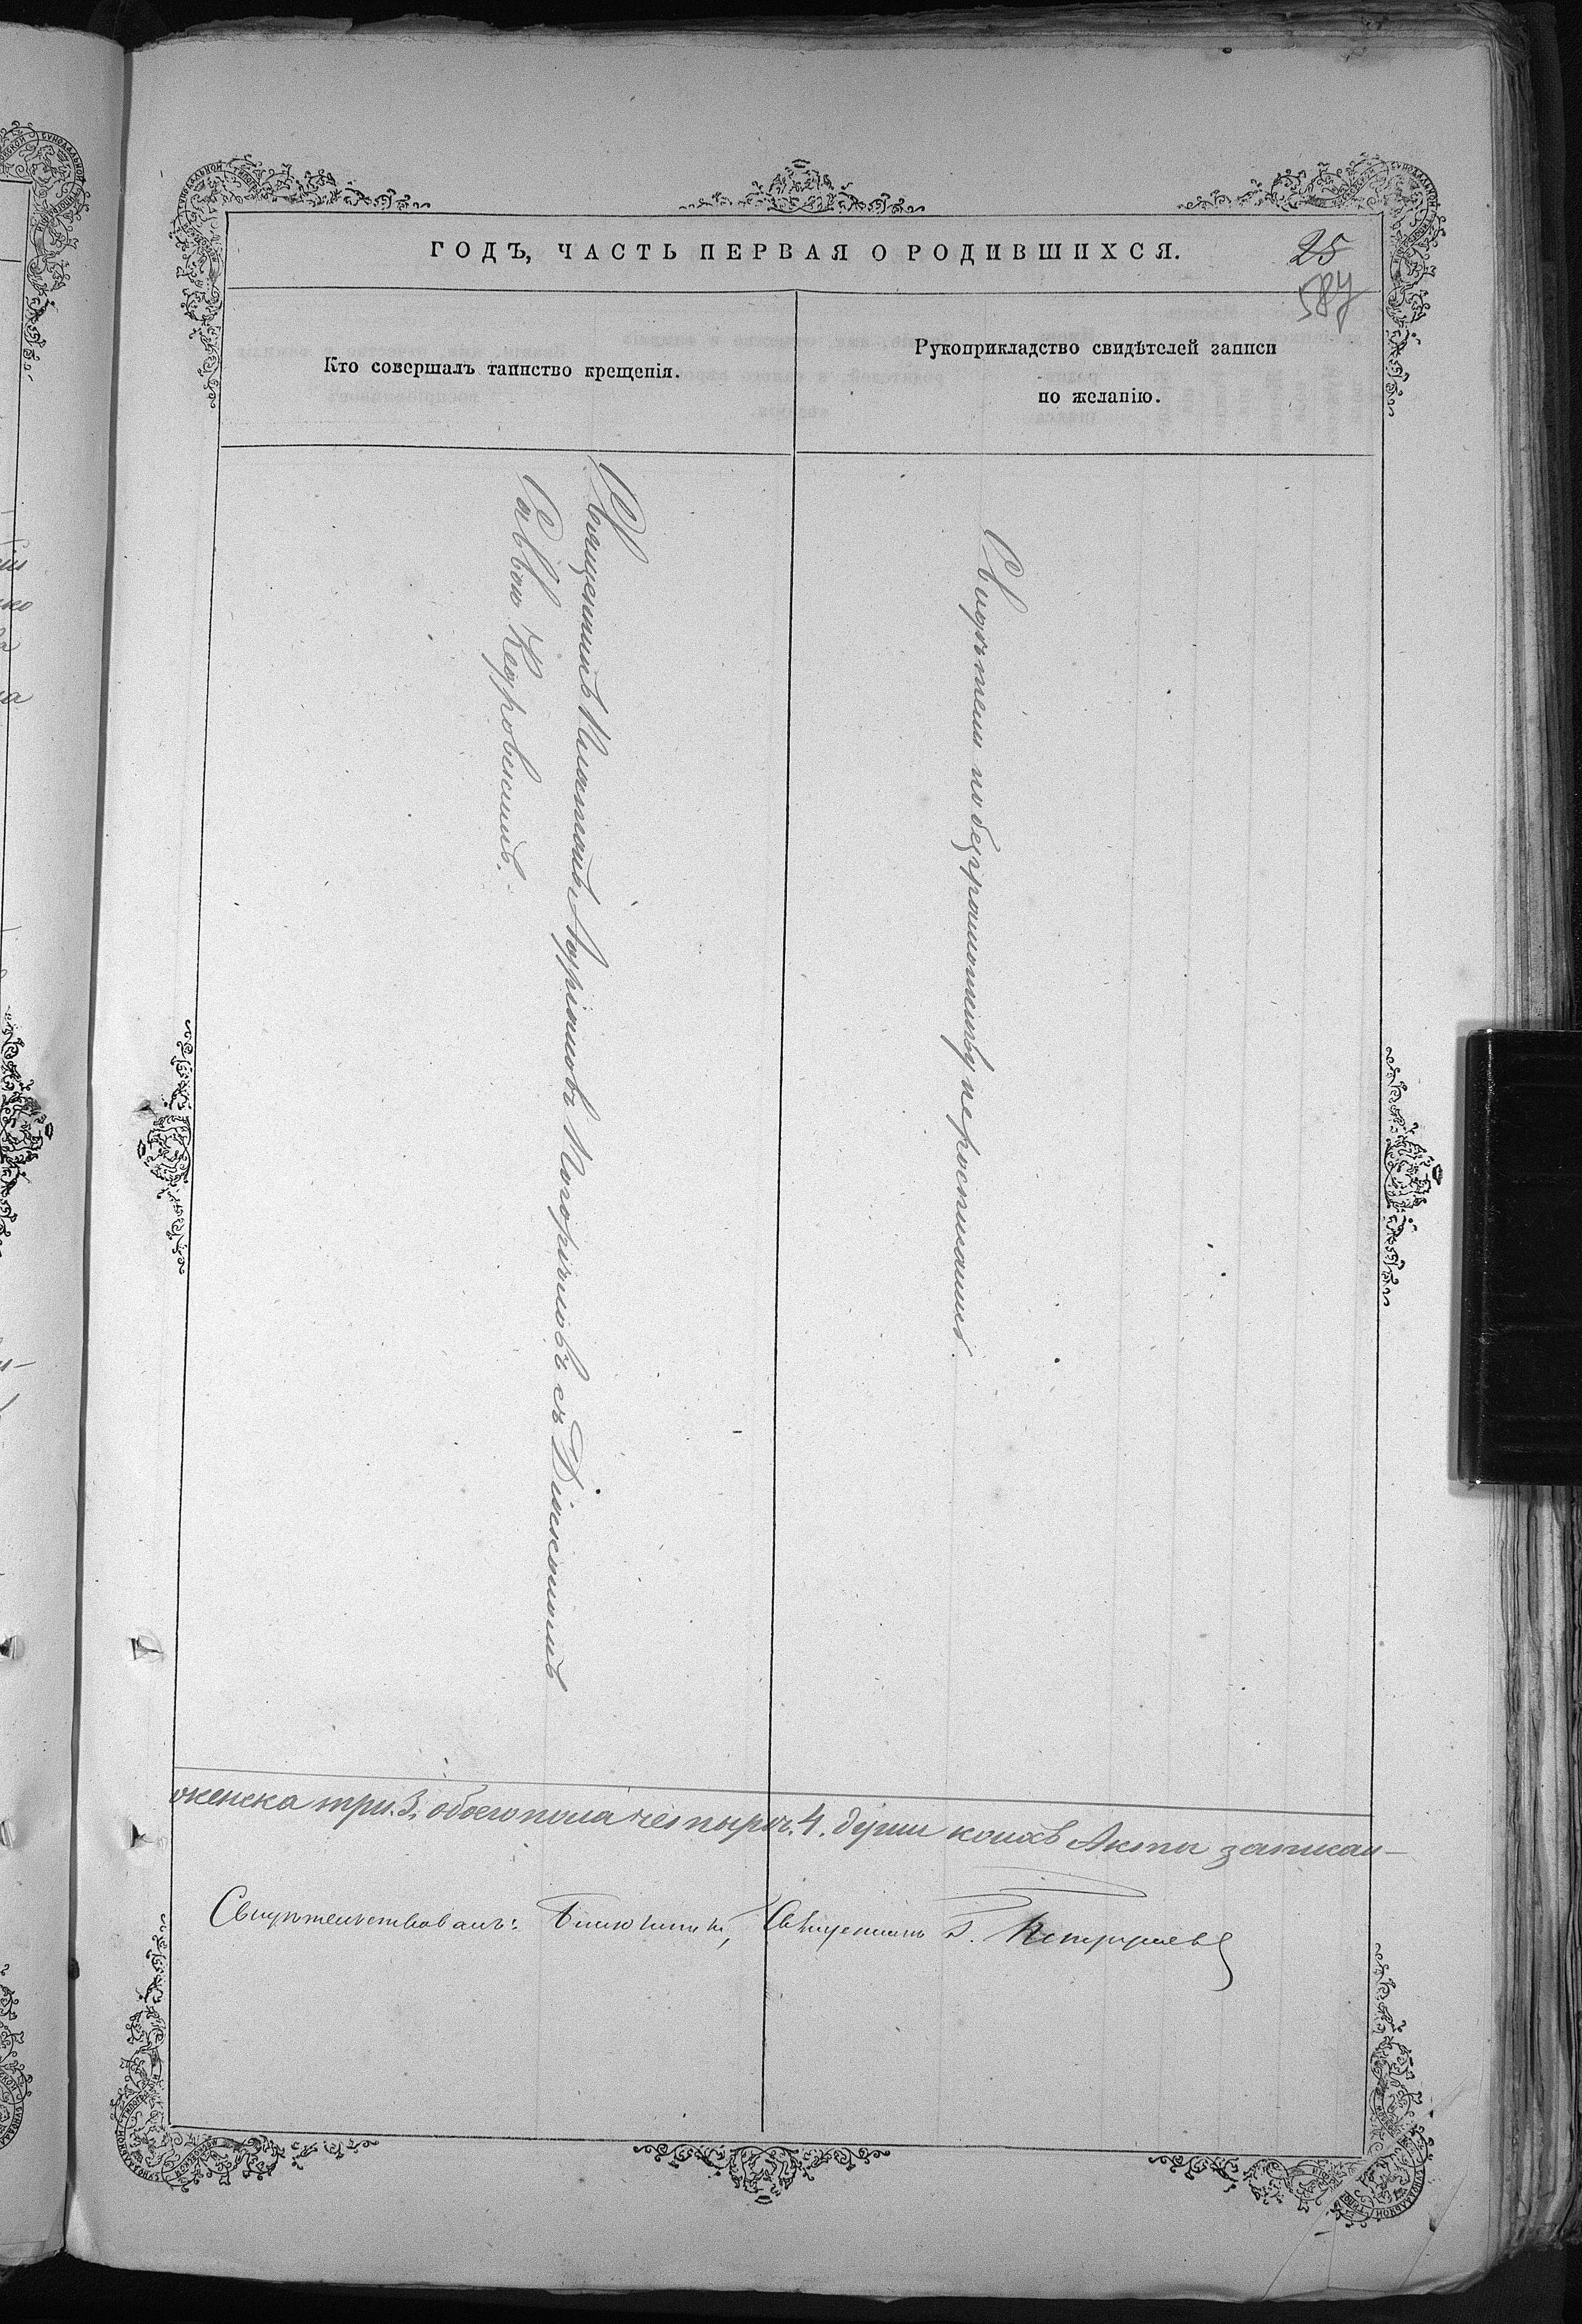 ГОДЪ, ЧАСТЬ ПЕРВАЯ О РОДИВШИХСЯ.
25
587
Кто совершалъ таинство крещенія.
Рукоприкладство свидѣтелей записи
по желанію.
Священникъ Платонъ Адріановъ съ Діакономъ
Саввою Кедровскимъ.
Свидѣтели по безграмотству неросписались.
женска три.3. обоего пола четыре.4. души коихъ Акты записан-
Свидѣтельствовалъ: Священникъ